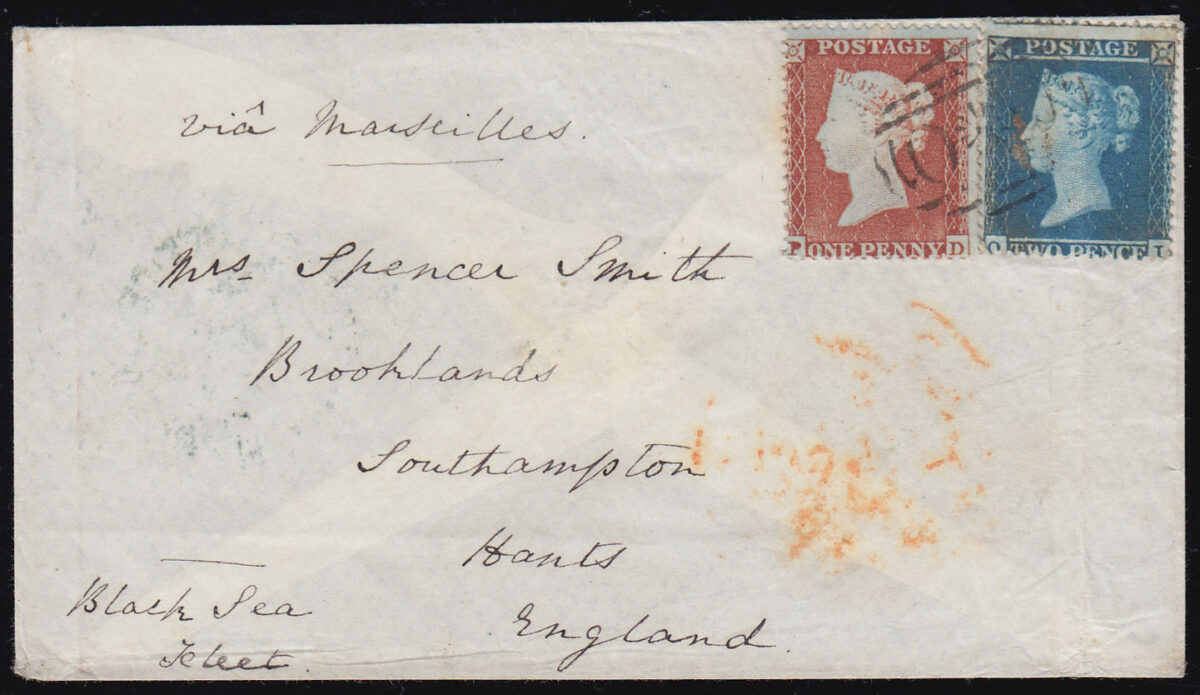 POSTAGE
ONE PENNY
P D
POSTAGE
TWO PENCE
viâ Marseilles.
Mrs Spencer Smith
Brooklands
Southampton
Hants
England
Black Sea
Fleet.